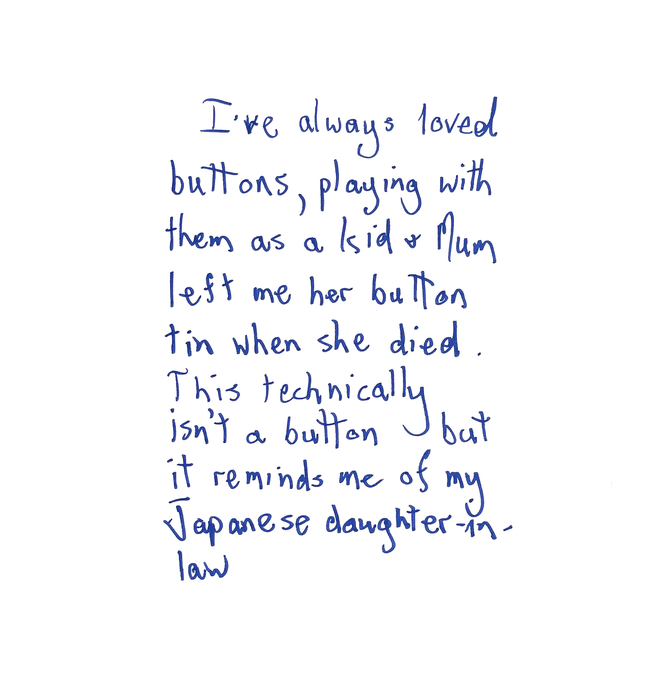 I've always loved
buttons, playing with
them as a kid & Mum
left me her button
tin when she died.
This technically
isn't a button but
it reminds me of my
Japanese daughter-in-
law